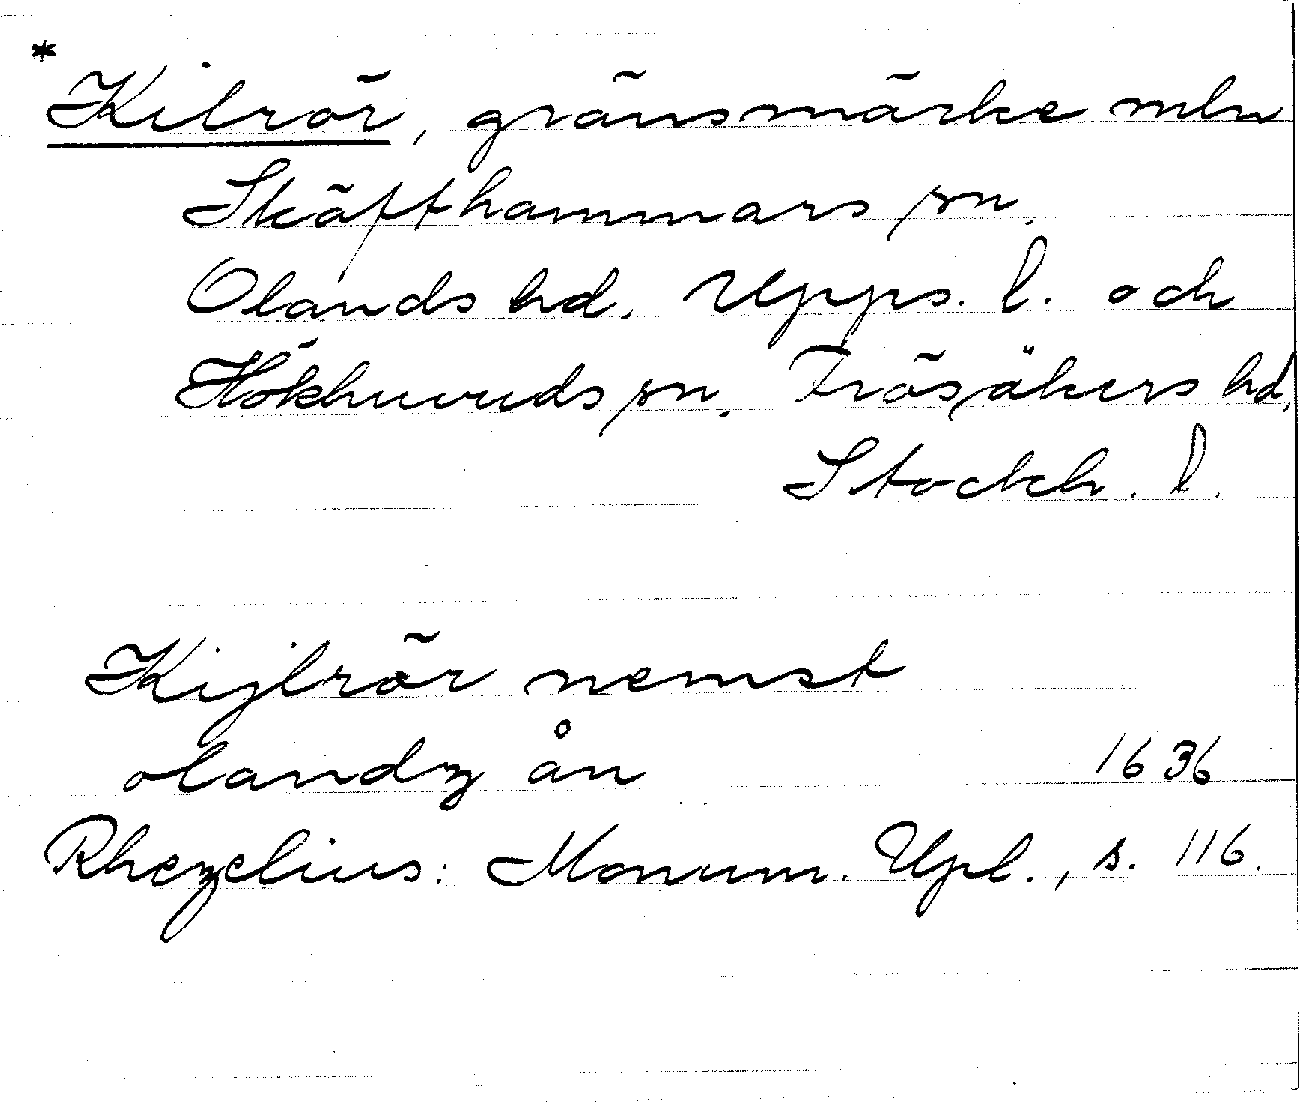 * Kilrör, gränsmärke mln
Skäfthammars sn,
Olands hd, Upps. l. och
Hökhuvuds sn, Frösåkers hd,
Stockh. l.
Kijlrör nemst
olandz ån 1636
Rhezelius: Monum. Upl., s. 116.